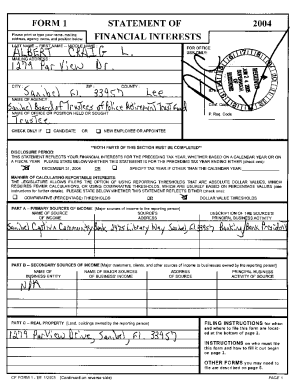 FORM 1 STATEMENT OF 2004
FINANCIAL INTERESTS
Please print or type your name, mailing address, agency name, and position below:
LAST NAME -- FIRST NAME -- MIDDLE NAME
ALBERT CRAIG L.
MAILING ADDRESS
1279 Par View Dr.
FOR OFFICE USE ONLY:
CITY ZIP COUNTY
Sanibel Fl. 33957 Lee
NAME OF AGENCY
Sanibel Board of Trustees of Police Retirement Trust Fund
NAME OF OFFICE OR POSITION HELD OR SOUGHT
Trustee
CHECK ONLY IF CANDIDATE OR NEW EMPLOYEE OR APPOINTEE
P. Req. Code
**BOTH PARTS OF THIS SECTION MUST BE COMPLETED**
DISCLOSURE PERIOD:
THIS STATEMENT REFLECTS YOUR FINANCIAL INTERESTS FOR THE PRECEDING TAX YEAR, WHETHER BASED ON A CALENDAR YEAR OR ON A FISCAL YEAR. PLEASE STATE BELOW WHETHER THIS STATEMENT IS FOR THE PRECEDING TAX YEAR ENDING EITHER (check one):
DECEMBER 31, 2004 OR SPECIFY TAX YEAR IF OTHER THAN THE CALENDAR YEAR:
MANNER OF CALCULATING REPORTABLE INTERESTS:
THE LEGISLATURE ALLOWS FILERS THE OPTION OF USING REPORTING THRESHOLDS THAT ARE ABSOLUTE DOLLAR VALUES, WHICH REQUIRES FEWER CALCULATIONS, OR USING COMPARATIVE THRESHOLDS, WHICH ARE USUALLY BASED ON PERCENTAGE VALUES (see instructions for further details). PLEASE STATE BELOW WHETHER THIS STATEMENT REFLECTS EITHER (check one):
COMPARATIVE (PERCENTAGE) THRESHOLDS OR DOLLAR VALUE THRESHOLDS
PART A -- PRIMARY SOURCES OF INCOME [Major sources of income to the reporting person]
NAME OF SOURCE OF INCOME SOURCE'S ADDRESS DESCRIPTION OF THE SOURCE'S PRINCIPAL BUSINESS ACTIVITY
Sanibel Captiva Community Bank 2475 Library Way Sanibel Fl 33957 Banking/Bank President
PART B -- SECONDARY SOURCES OF INCOME [Major customers, clients, and other sources of income to businesses owned by the reporting person]
NAME OF BUSINESS ENTITY NAME OF MAJOR SOURCES OF BUSINESS' INCOME ADDRESS OF SOURCE PRINCIPAL BUSINESS ACTIVITY OF SOURCE
N/A
PART C -- REAL PROPERTY [Land, buildings owned by the reporting person]
1279 ParView Drive, Sanibel Fl. 33957
FILING INSTRUCTIONS for when and where to file this form are located at the bottom of page 2.
INSTRUCTIONS on who must file this form and how to fill it out begin on page 3.
OTHER FORMS you may need to file are described on page 6.
CE FORM 1 - Eff. 1/2005 (Continued on reverse side) PAGE 1